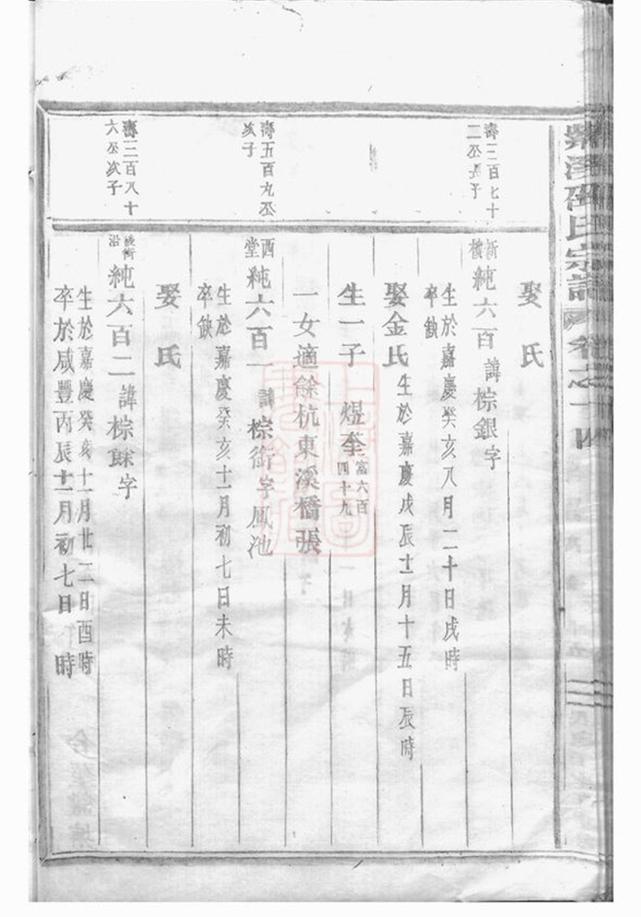 溪邵氏宗譜 卷之十四
娶氏
濟三百七十
二丞長子
新橋 純六百 諱棕銀字
生於嘉慶癸亥八月二十日戌時
卒缺
娶金氏 生於嘉慶戊辰十一月十五日辰時
生一子 煜奎 富六百四十九
一女適餘杭東溪橋張
濟五百九丞
次子
西堂 純六百一 諱棕銜字鳳池
生於嘉慶癸亥十一月初七日未時
卒缺
娶氏
濟三百八十
六丞次子
純六百二 諱棕銤字
生於嘉慶癸亥十一月廿二日酉時
卒於咸豐丙辰十一月初七日 時